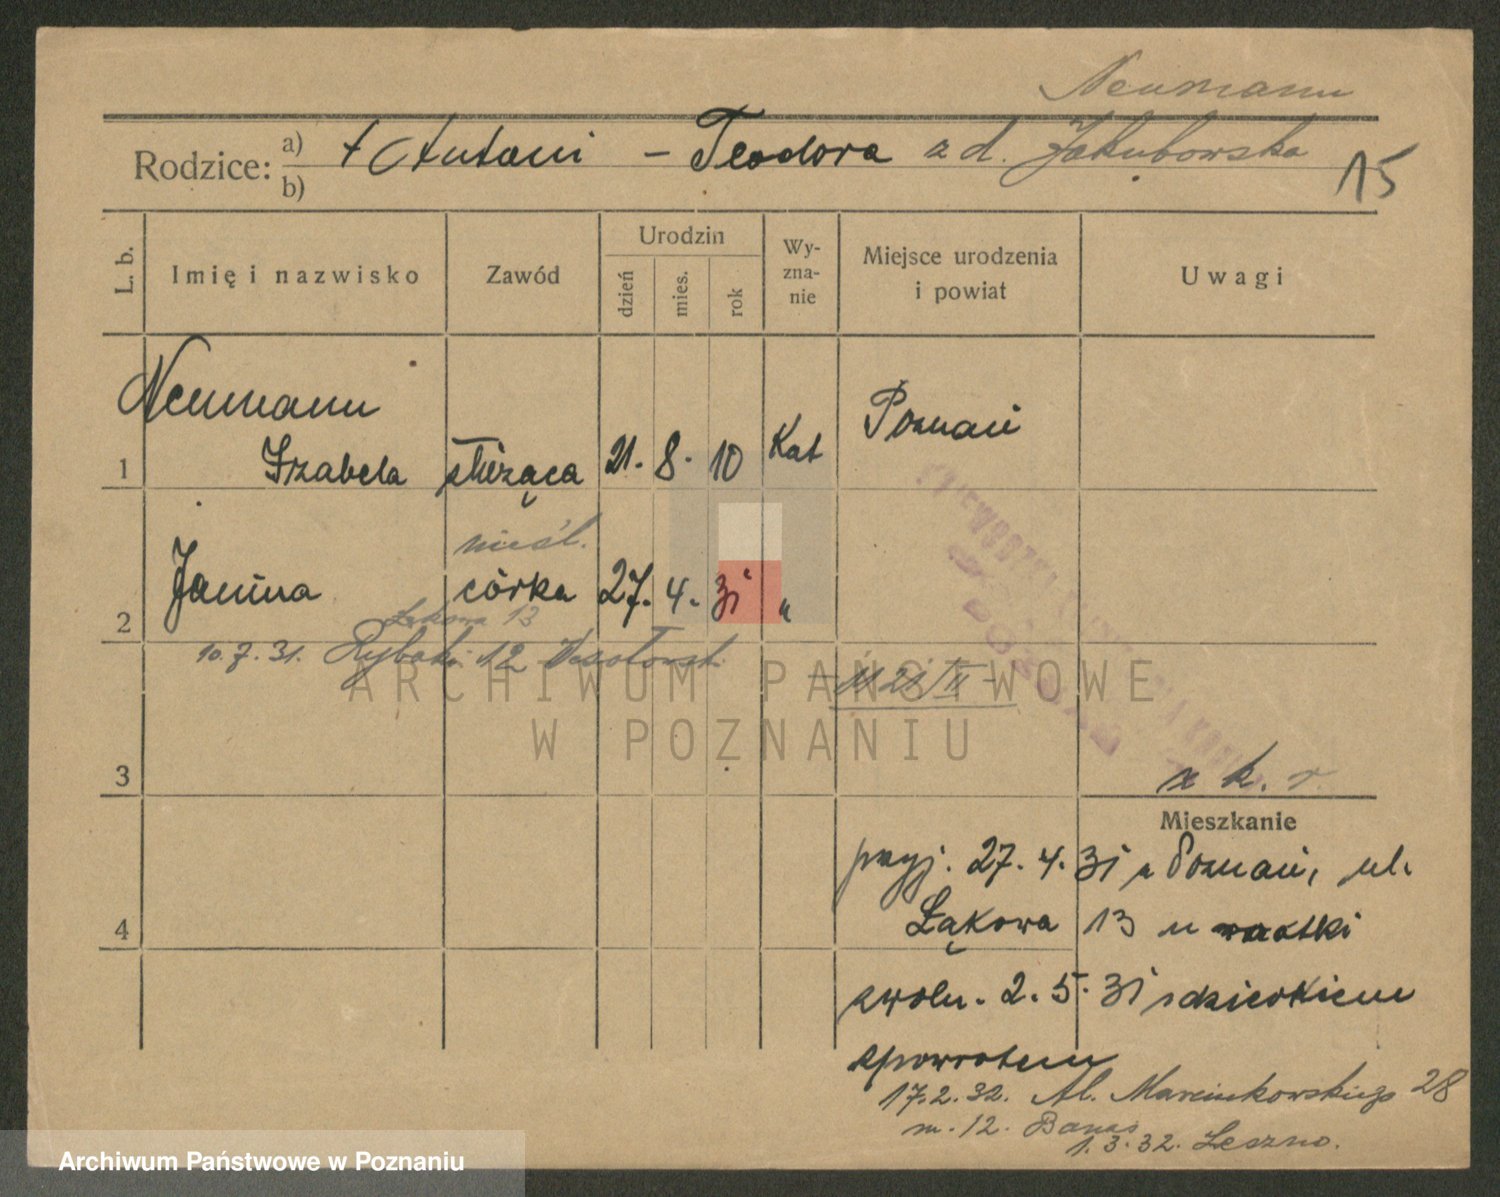 Neumann
Rodzice: a) † Antoni – Teodora z d. Jakubowska
b)
15
L. b.
Imię i nazwisko
Zawód
Urodzin
dzień
mies.
rok
Wy-
zna-
nie
Miejsce urodzenia
i powiat
Uwagi
Neumann
1 Izabela służąca 21. 8. 10 Kat Poznań
nieśl.
2 Janina córka 27. 4. 31 "
Łąkowa 13
10.7.31. Rybaki 12
ARCHIWUM PAŃSTWOWE
W POZNANIU
3
x k. r.
Mieszkanie
przyj. 27. 4. 31 z Poznań, ul.
4 Łąkowa 13 u matki
zwoln. 2. 5. 31 z dzieckiem
zpowrotem
17.2.32. Al. Marcinkowskiego 28
m. 12. Banaś
1.3.32. Leszno.
Archiwum Państwowe w Poznaniu